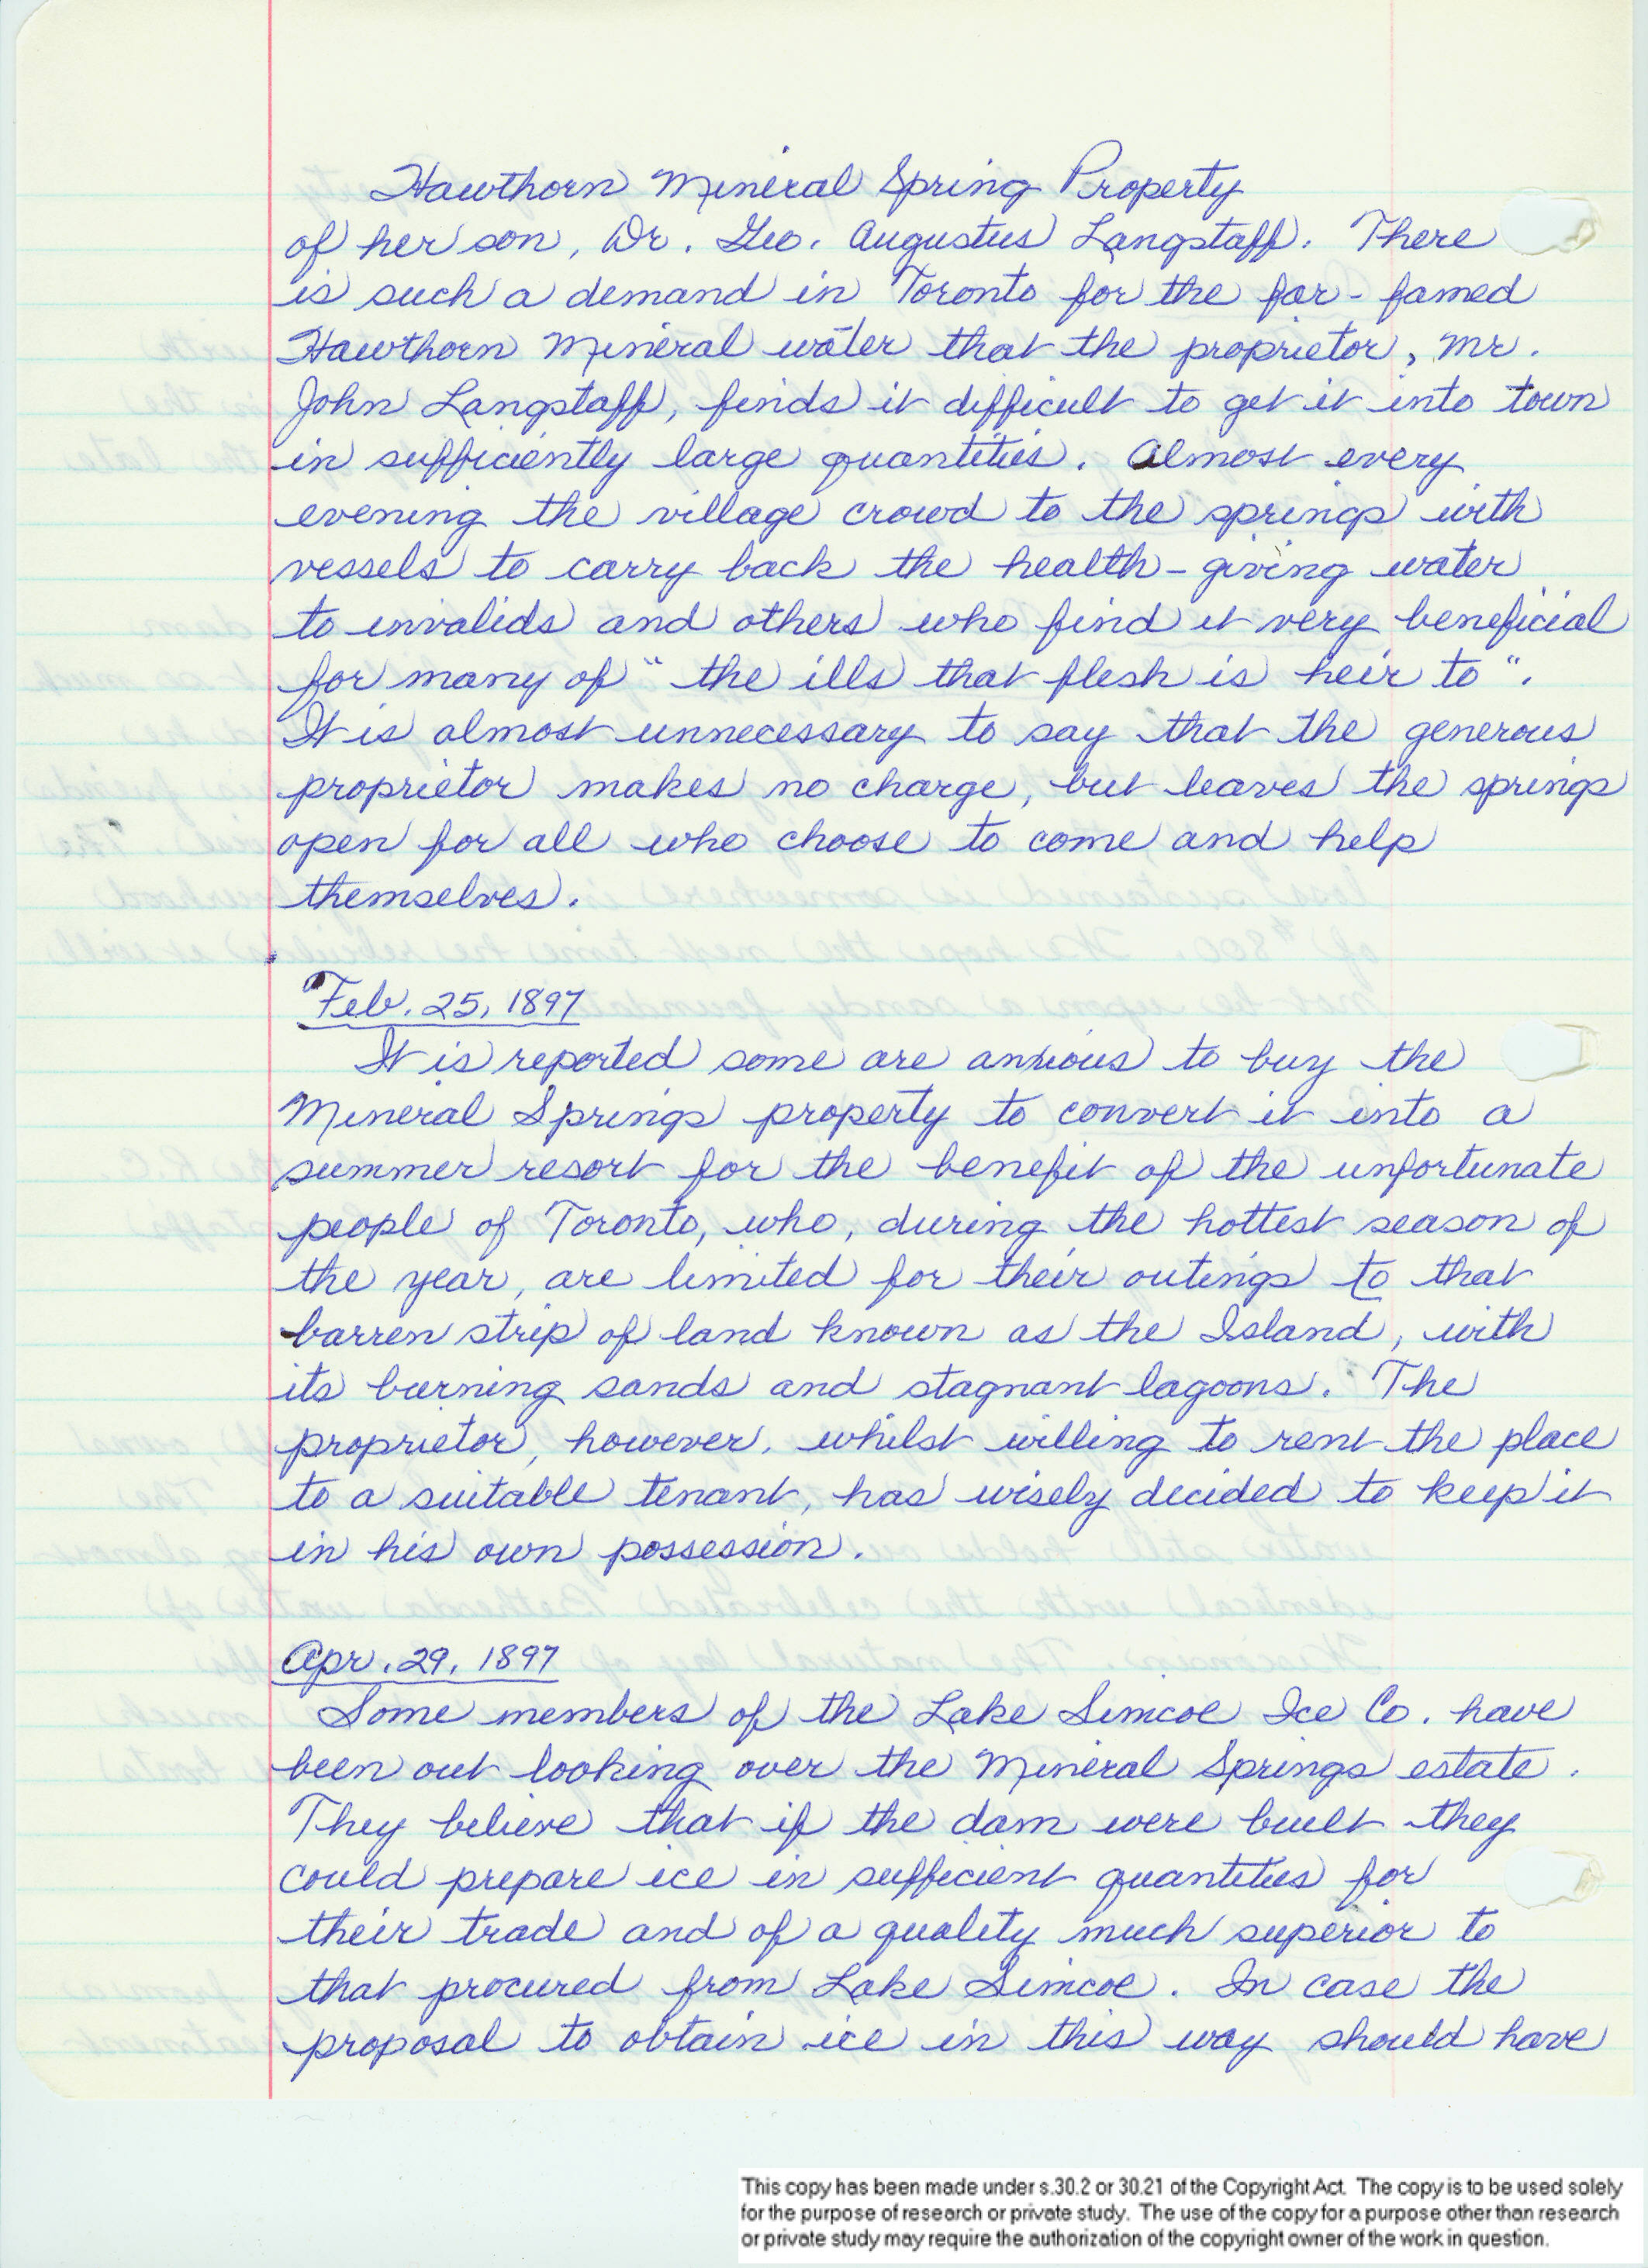 Hawthorn Mineral Spring Property
of her son, Dr. Geo. Augustus Langstaff. There
is such a demand in Toronto for the far-famed
Hawthorn Mineral water that the proprietor, Mr.
John Langstaff, finds it difficult to get it into town
in sufficiently large quantities. Almost every
evening the village crowd to the springs with
vessels to carry back the health-giving water
to invalids and others who find it very beneficial
for many of "the ills that flesh is heir to".
It is almost unnecessary to say that the generous
proprietor makes no charge, but leaves the springs
open for all who choose to come and help
themselves.
Feb. 25, 1897
It is reported some are anxious to buy the
Mineral Springs property to convert it into a
summer resort for the benefit of the unfortunate
people of Toronto, who, during the hottest season of
the year, are limited for their outings to that
barren strip of land known as the Island, with
its burning sands and stagnant lagoons. The
proprietor, however, whilst willing to rent the place
to a suitable tenant, has wisely decided to keep it
in his own possession.
Apr. 29, 1897
Some members of the Lake Simcoe Ice Co. have
been out looking over the Mineral Springs estate.
They believe that if the dam were built they
could prepare ice in sufficient quantities for
their trade and of a quality much superior to
that procured from Lake Simcoe. In case the
proposal to obtain ice in this way should have
This copy has been made under s.30.2 or 30.21 of the Copyright Act. The copy is to be used solely
for the purpose of research or private study. The use of the copy for a purpose other than research
or private study may require the authorization of the copyright owner of the work in question.